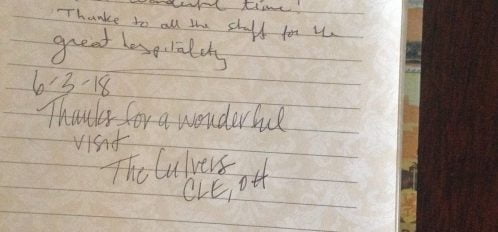 wonderful time!
Thanks to all the staff for the
great hospitality
6-3-18
Thanks for a wonderful
visit
The Culvers
CLE, OH